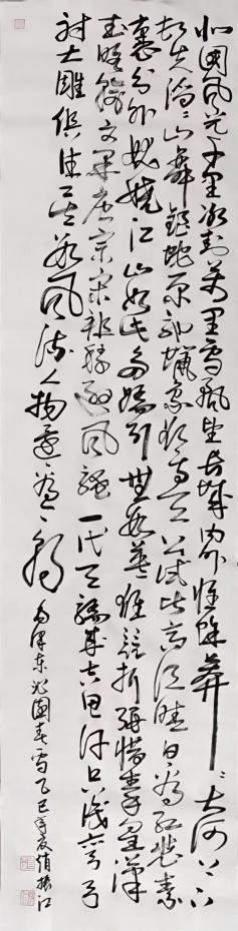 北國風光千里冰封万里雪飘望长城内外惟馀莽々大河上下
顿失滔々山舞银蛇原驰蜡象欲与天公试比高须晴日看红装素
裹分外妖娆江山如此多娇引无数英雄竞折腰惜秦皇汉
武略输文采唐宗宋祖稍逊风骚一代天骄成吉思汗只识弯弓
射大雕俱往矣数风流人物还看今朝
毛泽东沁園春雪乙巳年夏肖振江